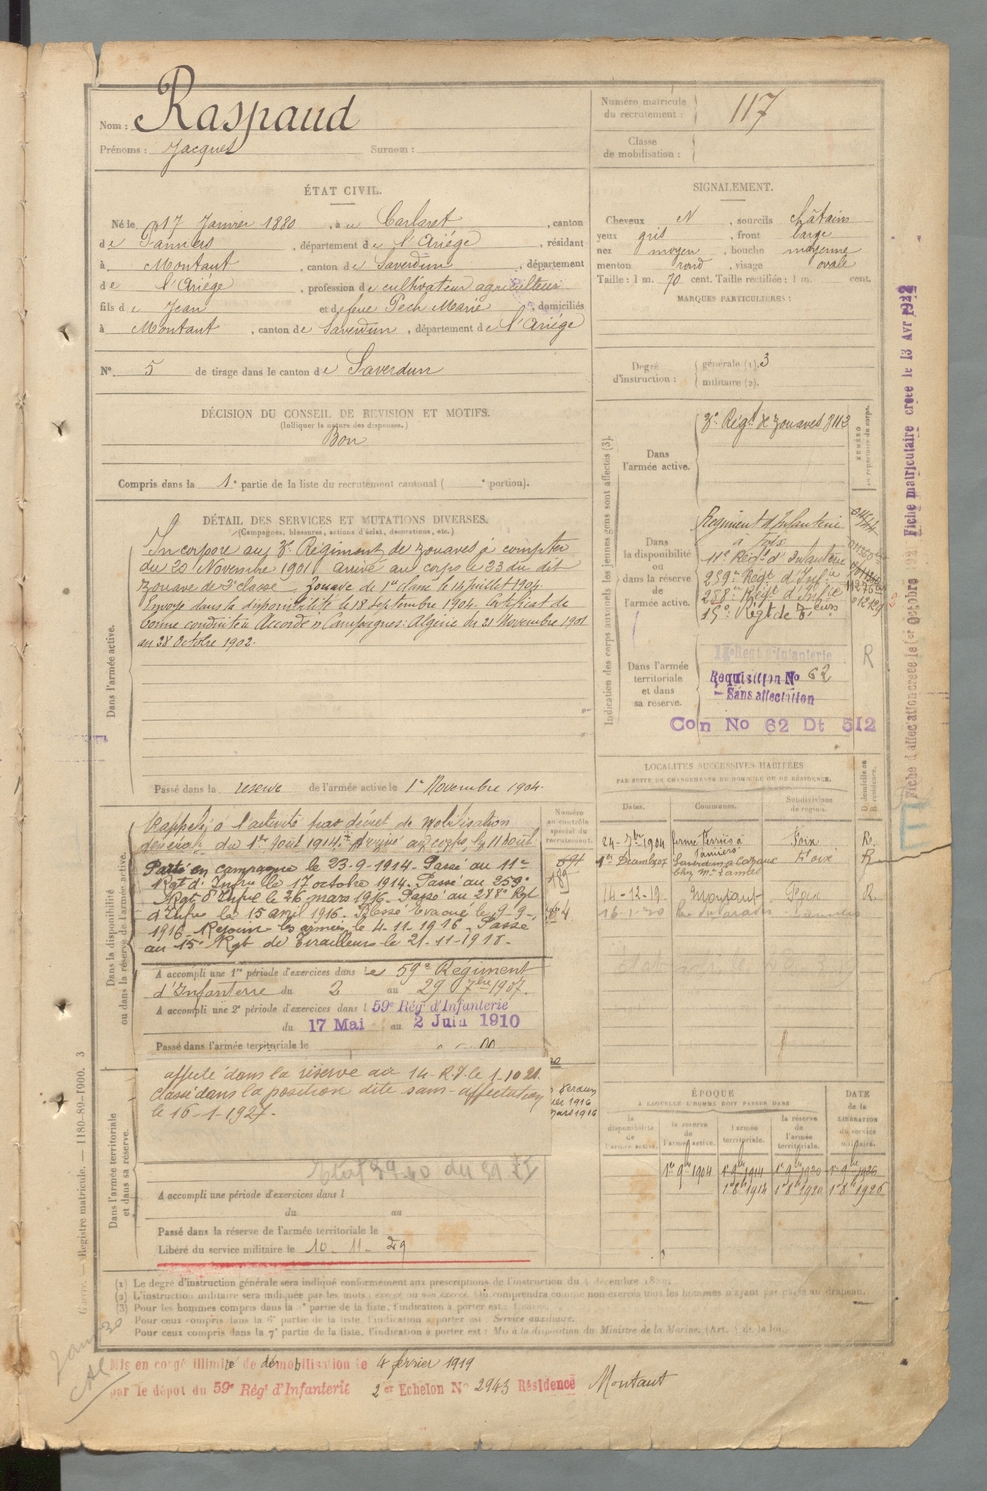 Nom : Raspaud
Prénoms : Jacques Surnom :
Numéro matricule du recrutement : 117
Classe de mobilisation :
ÉTAT CIVIL.
Né le 17 Janvier 1880, à Carlaret, canton
de Pamiers, département de l'Ariège, résidant
à Montaut, canton de Saverdun, département
de l'Ariège, profession de cultivateur agriculteur
fils de Jean et de feue Pech Marie, domiciliés
à Montaut, canton de Saverdun, département de l'Ariège
N° 5 de tirage dans le canton de Saverdun
DÉCISION DU CONSEIL DE REVISION ET MOTIFS.
(Indiquer la nature des dispenses.)
Bon
Compris dans la 1e partie de la liste du recrutement cantonal ( e portion).
DÉTAIL DES SERVICES ET MUTATIONS DIVERSES.
(Campagnes, blessures, actions d'éclat, décorations, etc.)
Dans l'armée active.
Incorporé au 3e Régiment de Zouaves à compter
du 20 Novembre 1901 arrivé au corps le 23 du dit
Zouave de 2e classe Zouave de 1re classe le 14 juillet 1904
Envoyé dans la disponibilité le 18 Septembre 1904. Certificat de
bonne conduite "Accordé" Campagnes: Algérie du 21 Novembre 1901
au 28 Octobre 1902.
Passé dans la réserve de l'armée active le 1er Novembre 1904.
Dans la disponibilité ou dans la réserve de l'armée active.
Rappelé à l'activité par décret de Mobilisation
générale du 1er Août 1914. Arrivé au corps le 11 Août
Parti en campagne le 23-9-1914. Passé au 11e
Rgt d'Infrie le 17 octobre 1914. Passé au 259e
Rgt d'Infrie le 26 mars 1916. Passé au 288e Rgt
d'Infrie le 15 avril 1916. Blessé Evacué le 9-9-
1916. Rejoint les armées le 4-11-1916. Passé
au 15e Rgt de Tirailleurs le 21-11-1918.
Numéro au contrôle spécial du recrutement.
A accompli une 1re période d'exercices dans le 59e Régiment
d'Infanterie du 2 au 29 7bre 1907.
A accompli une 2e période d'exercices dans l 59e Régt d'Infanterie
du 17 Mai au 2 Juin 1910
Passé dans l'armée territoriale le
Dans l'armée territoriale et dans sa réserve.
affecté dans la réserve au 14 R.I. le 1-10-21
classé dans la position dite sans affectation
le 16-1-1927.
A accompli une période d'exercices dans l
du au
Passé dans la réserve de l'armée territoriale le
Libéré du service militaire le 10-11-29
SIGNALEMENT.
Cheveux N, sourcils châtain
yeux gris, front large
nez moyen, bouche moyenne
menton rond, visage ovale
Taille : 1 m. 70 cent. Taille rectifiée : 1 m. cent.
MARQUES PARTICULIÈRES :
Degré d'instruction : générale (1). 3
militaire (2).
Indication des corps auxquels les jeunes gens sont affectés (3).
Dans l'armée active.
3e Régt de Zouaves 8113
NUMÉRO au répertoire du corps.
Dans la disponibilité ou dans la réserve de l'armée active.
Régiment d'Infanterie
à Foix
11e Régt d'Infanterie
259e Régt d'Infie
288e Régt d'Infie
15e Régt de Teurs
Dans l'armée territoriale et dans sa réserve.
Réquisition No 62
Sans affectation
R
Con No 62 Dt 512
LOCALITÉS SUCCESSIVES HABITÉES
PAR SUITE DE CHANGEMENTS DE DOMICILE OU DE RÉSIDENCE.
Dates. Communes. Subdivisions de région. D. domicile ou R. résidence.
24-7bre 1904 Pamiers Foix R.
Foix R
14-12-19 Montaut Foix R.
16-1-20
ÉPOQUE
À LAQUELLE L'HOMME DOIT PASSER DANS
la disponibilité de l'armée active.
la réserve de l'armée active.
l'armée territoriale.
la réserve de l'armée territoriale.
DATE de la LIBÉRATION du service militaire.
1er 9bre 1904 1er 9bre 1914 1er 9bre 1920 1er 9bre 1926
1er 8bre 1914 1er 8bre 1920 1er 8bre 1926
(1) Le degré d'instruction générale sera indiqué conformément aux prescriptions de l'instruction du
(2) L'instruction militaire sera indiquée par les mots : exercé ou non exercé. On comprendra comme non exercés tous les hommes n'ayant pas passé au drapeau.
(3) Pour les hommes compris dans la partie de la liste, l'indication à porter est :
Pour ceux compris dans la 6e partie de la liste, l'indication à porter est : Service auxiliaire.
Pour ceux compris dans la 7e partie de la liste, l'indication à porter est : Mis à la disposition du Ministre de la Marine. (Art. de la loi.)
Mis en congé illimité de démobilisation le 4 février 1919
par le dépôt du 59e Régt d'Infanterie 2er Echelon N° 2943 Résidence Montaut
Registre matricule. — 1180-89-1900. 3
Fiche matriculaire créée le 13 Avr 1922
Fiche d'affectation créée le 1er Octobre 1921